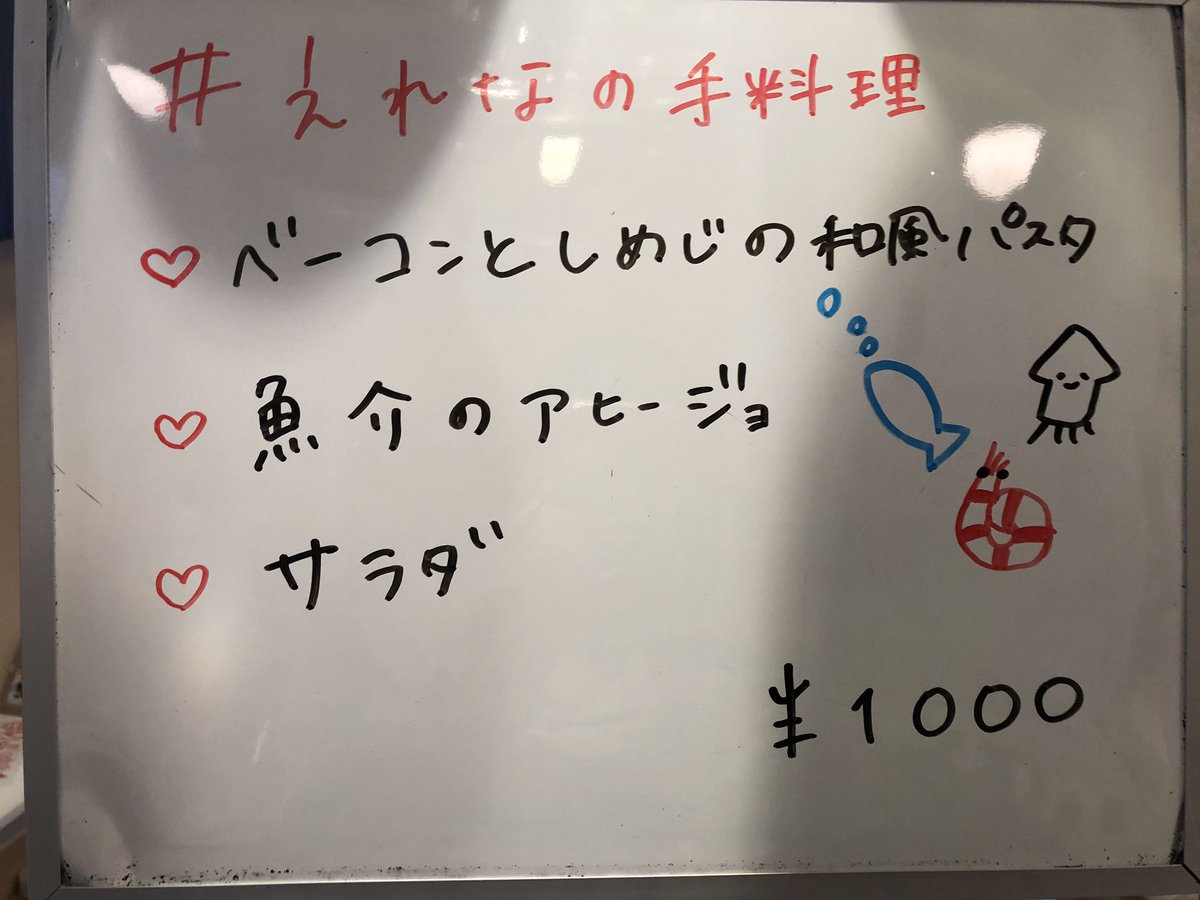 #えれなの手料理
♡ ベーコンとしめじの和風パスタ
♡ 魚介のアヒージョ
♡ サラダ
¥1000